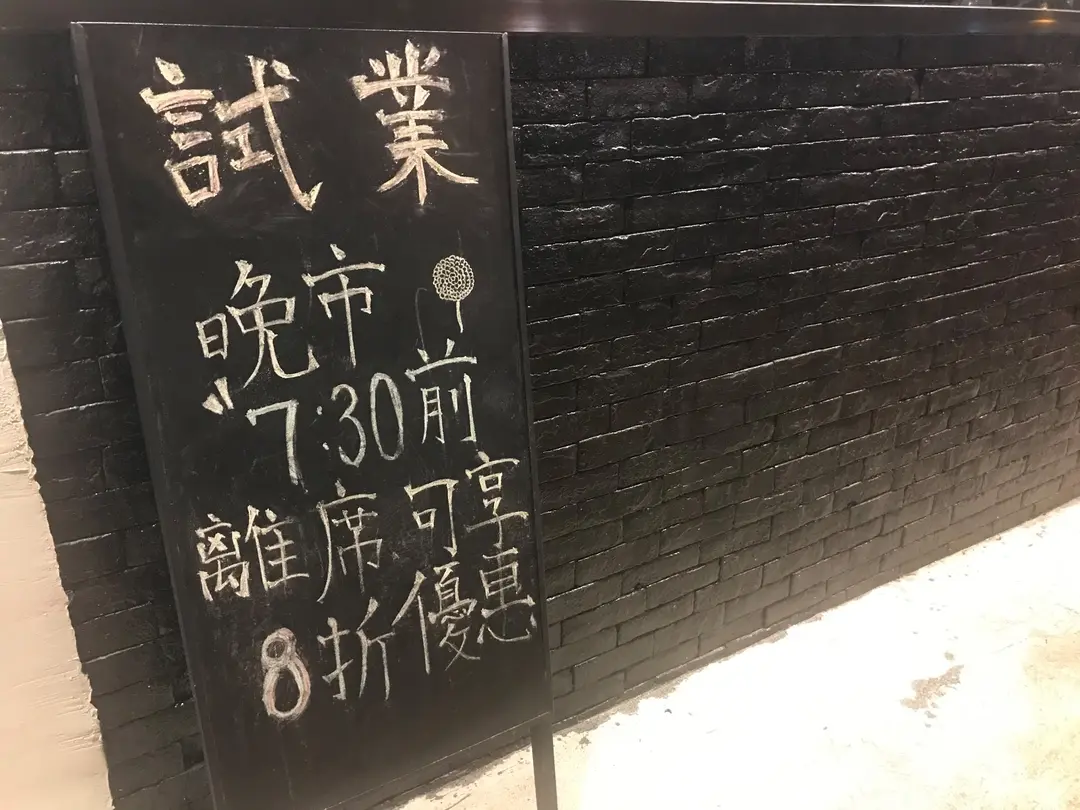 試業
晚市
7:30前
離席可享
8折優惠